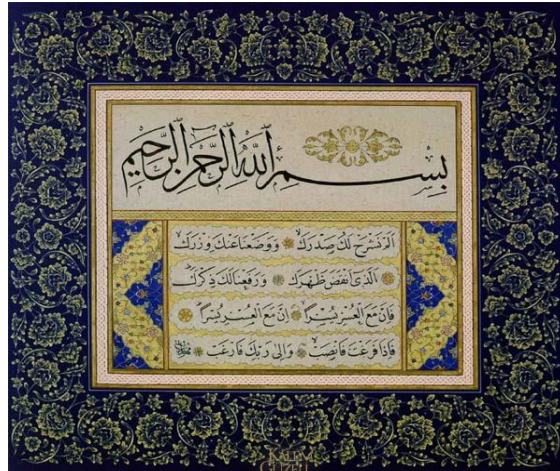 بِسْمِ اللّٰهِ الرَّحْمٰنِ الرَّحِيمِ
اَلَمْ نَشْرَحْ لَكَ صَدْرَكَ وَوَضَعْنَا عَنْكَ وِزْرَكَ
اَلَّذٖى اَنْقَضَ ظَهْرَكَ وَرَفَعْنَا لَكَ ذِكْرَكَ
فَاِنَّ مَعَ الْعُسْرِ يُسْرًا اِنَّ مَعَ الْعُسْرِ يُسْرًا
فَاِذَا فَرَغْتَ فَانْصَبْ وَاِلٰى رَبِّكَ فَارْغَبْ
KALEM GÜZELİ